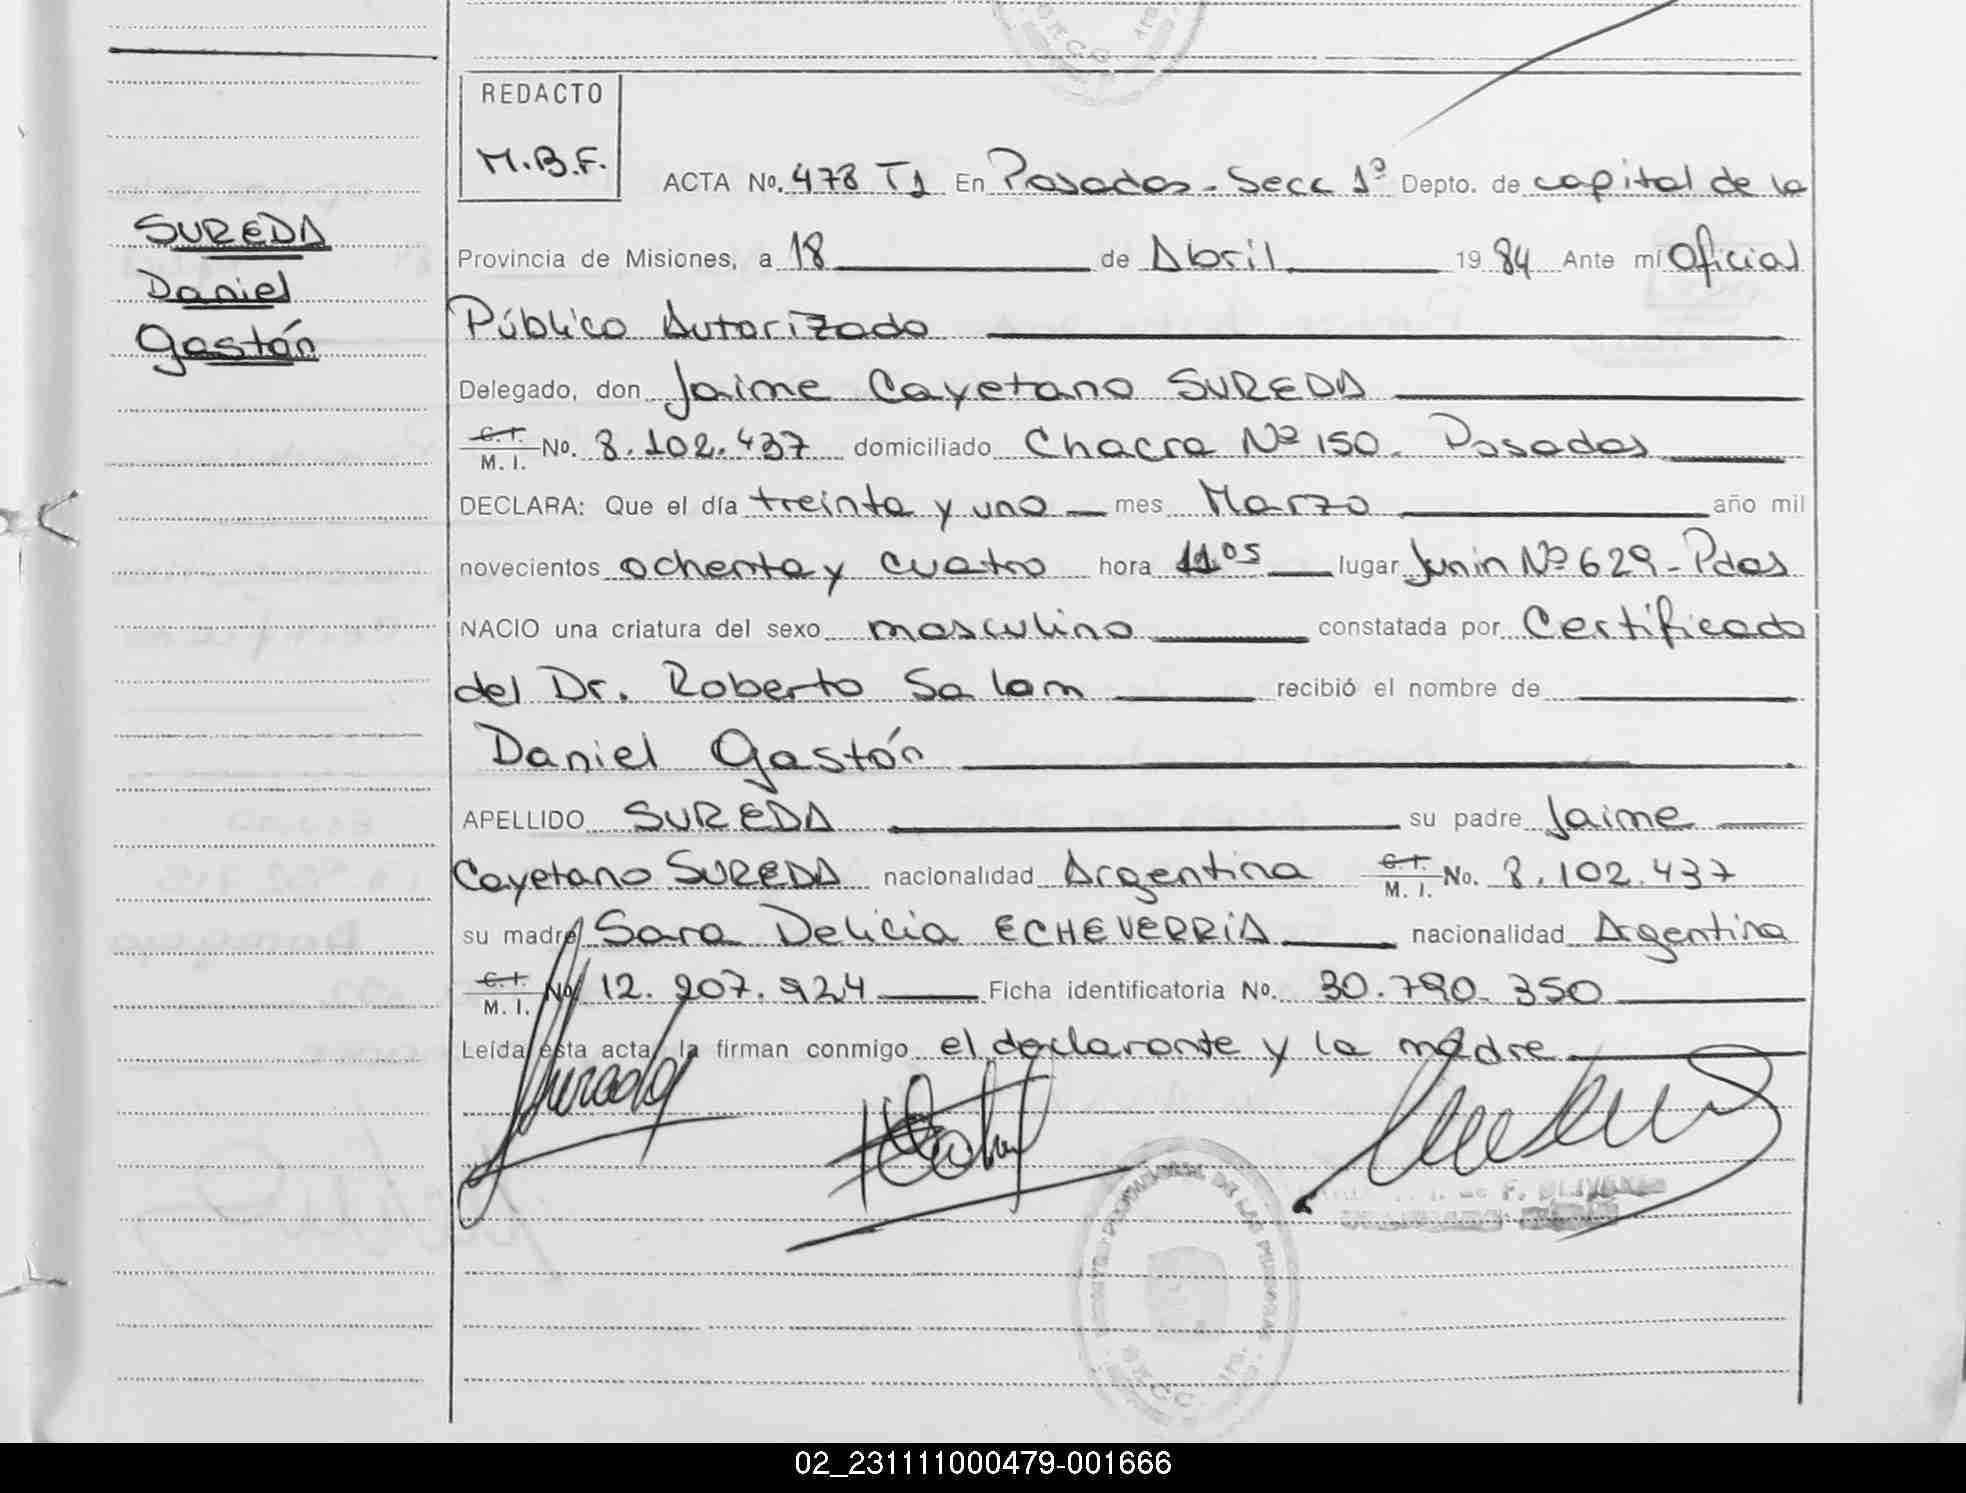 REDACTO
M.B.F.
ACTA No. 478 T1 En Posadas - Secc 1ª Depto. de capital de la
SUREDA
Daniel
Gastón
Provincia de Misiones, a 18 de Abril 1984 Ante mí Oficial
Público Autorizado
Delegado, don Jaime Cayetano SUREDA
C.I. M. I. No. 8.102.437 domiciliado Chacra Nº 150. Posadas
DECLARA: Que el día treinta y uno mes Marzo año mil
novecientos ochenta y cuatro hora 11 05 lugar Junin Nº 629 - Pdas
NACIO una criatura del sexo masculino constatada por Certificado
del Dr. Roberto Salom recibió el nombre de
Daniel Gastón
APELLIDO SUREDA su padre Jaime
Cayetano SUREDA nacionalidad Argentina C.I. M. I. No. 8.102.437
su madre Sara Delicia ECHEVERRIA nacionalidad Argentina
C.I. M. I. No. 12.207.924 Ficha identificatoria No. 30.790.350
Leída esta acta, la firman conmigo el declarante y la madre
02_231111000479-001666